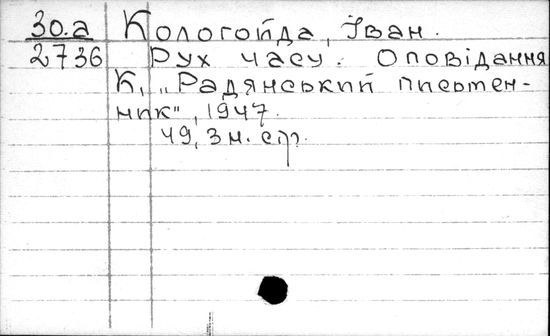 30.а Кологойда, Іван.
2736 Рух часу. Оповідання
К, „Радянський письмен-
ник", 1947.
49, 3 н. стр.